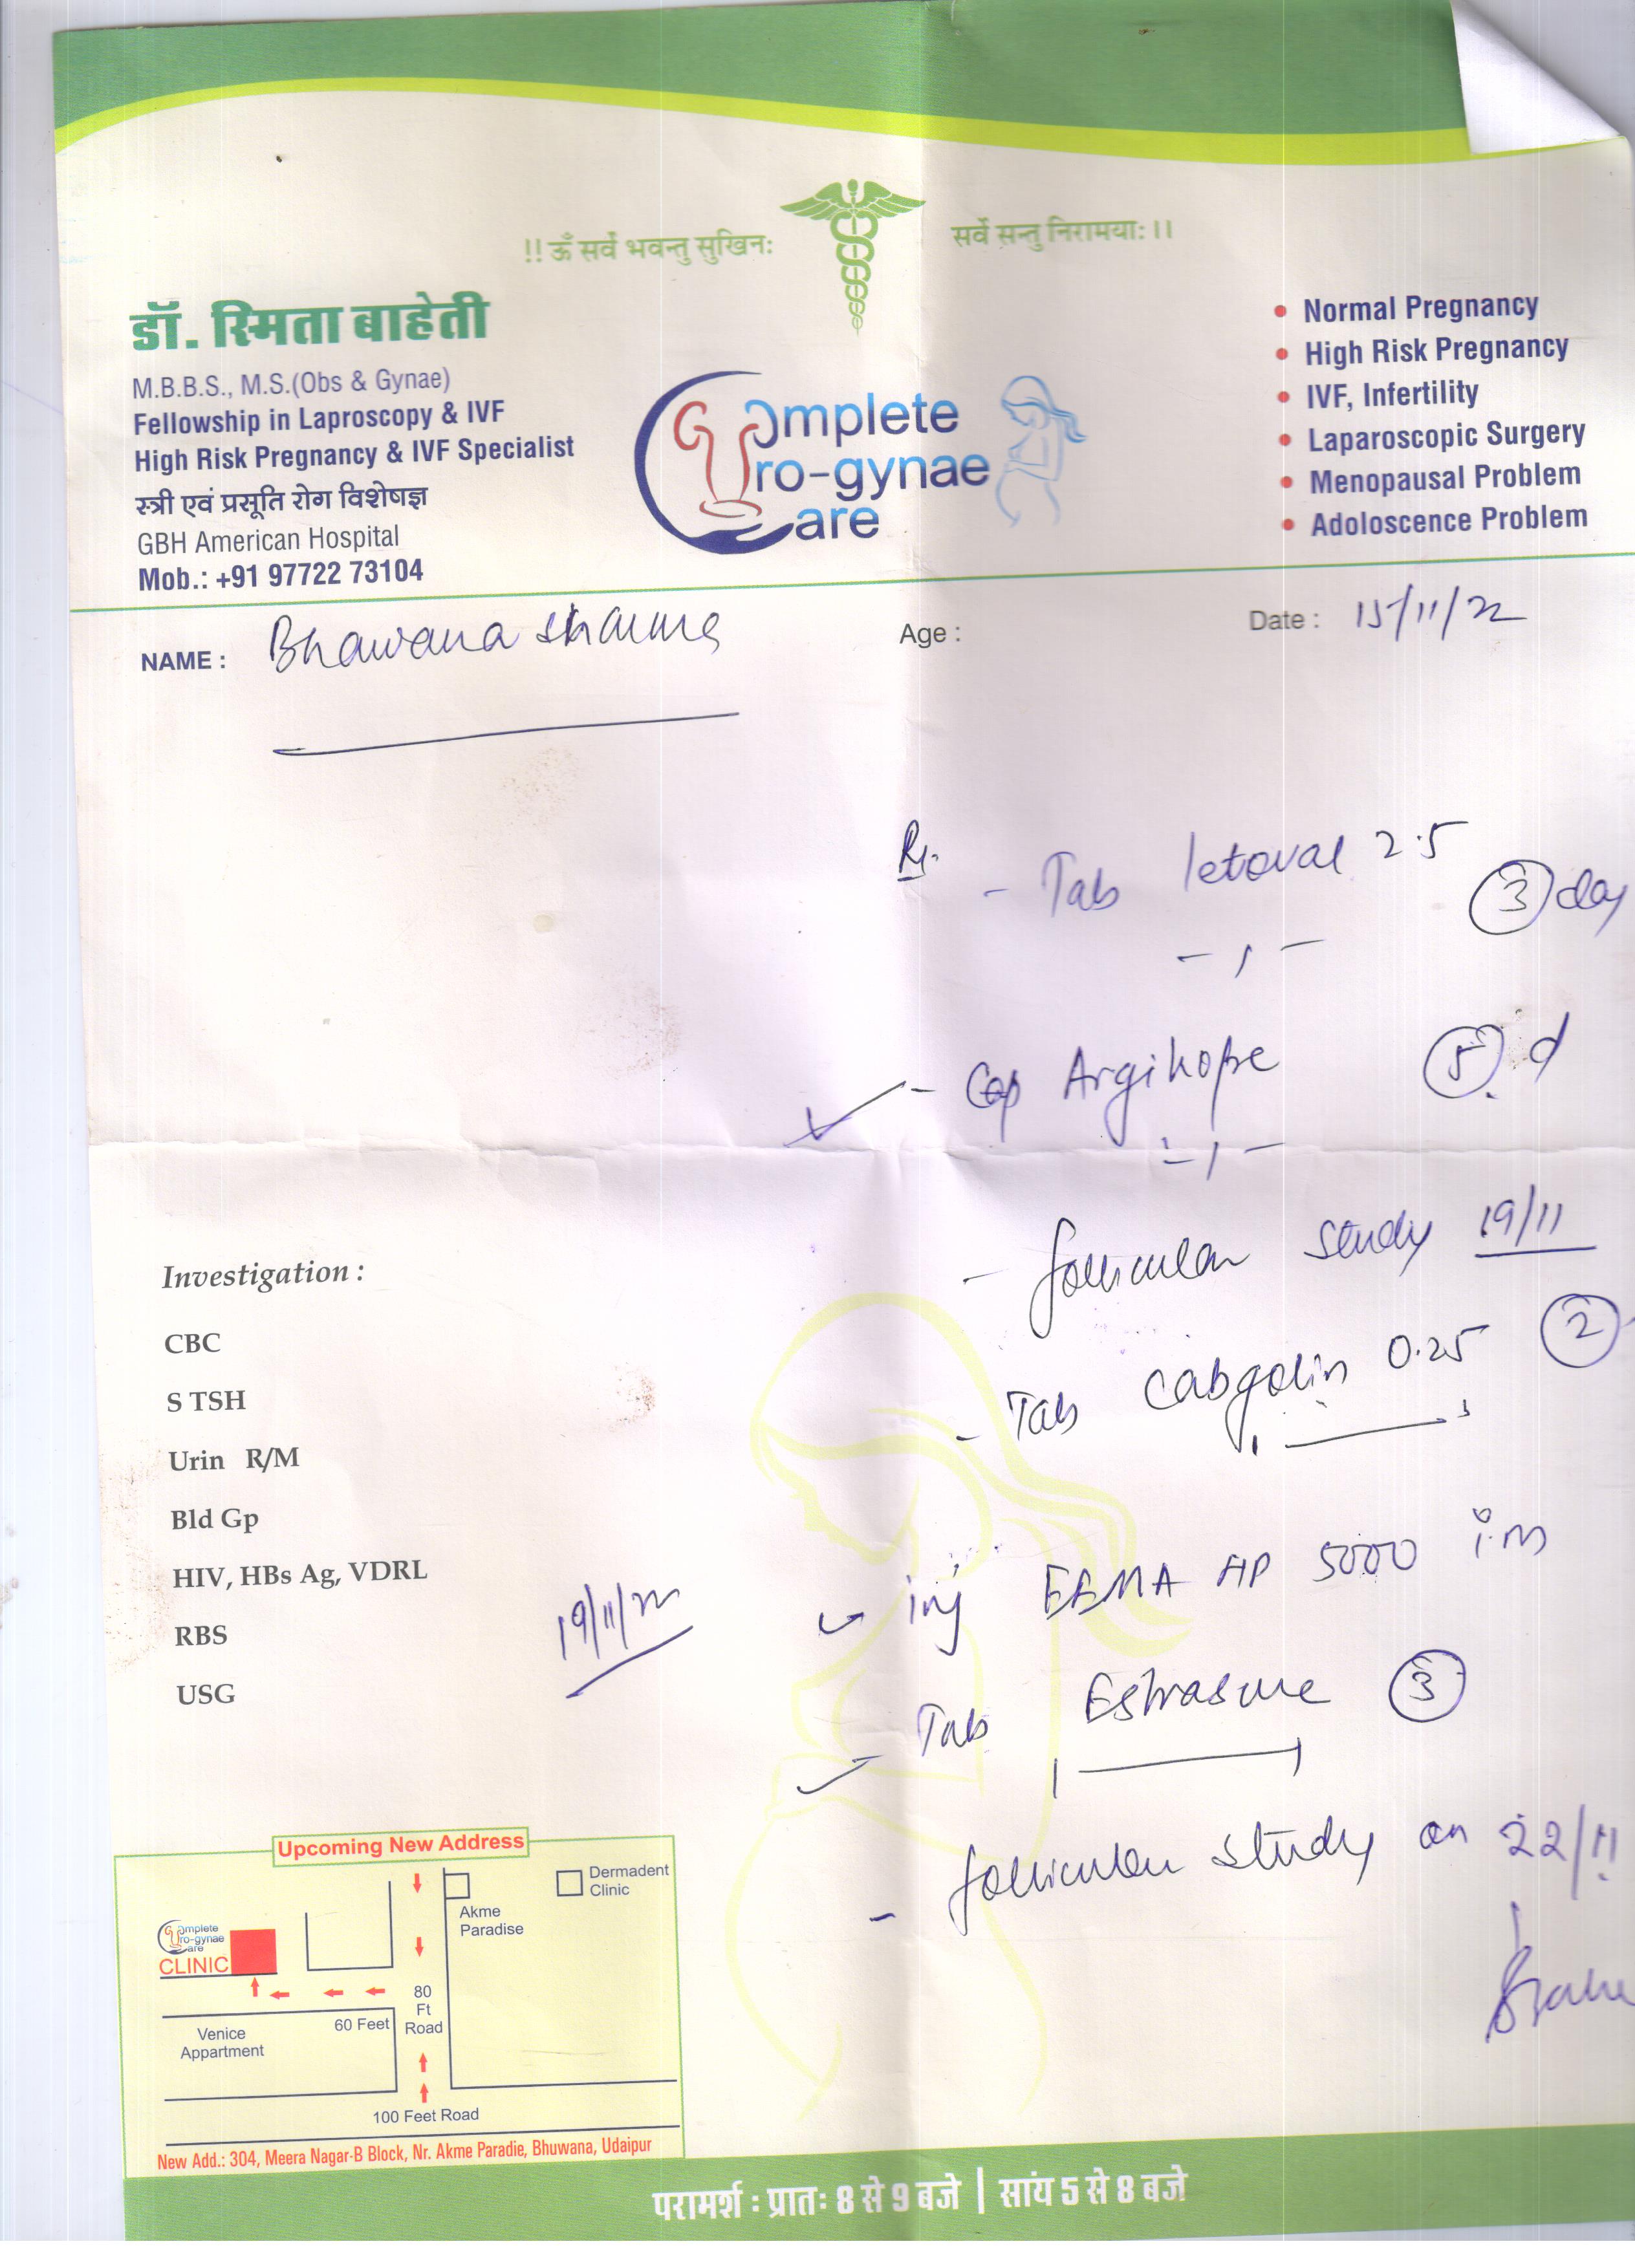 !! ॐ सर्वे भवन्तु सुखिनः
सर्वे सन्तु निरामयाः ।।
डॉ. स्मिता बाहेती
M.B.B.S., M.S.(Obs & Gynae)
Fellowship in Laproscopy & IVF
High Risk Pregnancy & IVF Specialist
स्त्री एवं प्रसूति रोग विशेषज्ञ
GBH American Hospital
Mob.: +91 97722 73104
Complete
Uro-gynae
Care
• Normal Pregnancy
• High Risk Pregnancy
• IVF, Infertility
• Laparoscopic Surgery
• Menopausal Problem
• Adoloscence Problem
NAME : Bhawana Sharma
Age :
Date : 15/11/22
Rx.
- Tab letoval 2.5
3 day
- 1 -
- Cap Argihope 5 d
- 1 -
- follicular study 19/11
- Tab Cabgolin 0.25 2
1 — 1
Investigation :
CBC
S TSH
Urin R/M
Bld Gp
HIV, HBs Ag, VDRL
RBS
USG
19/11/22
inj EEMA HP 5000 i.m
Tab Estrasure 3
1 — 1
- follicular study on 22/11
Upcoming New Address
Complete
Uro-gynae
Care
CLINIC
Akme
Paradise
Dermadent
Clinic
80
Ft
Road
60 Feet
Venice
Appartment
100 Feet Road
New Add.: 304, Meera Nagar-B Block, Nr. Akme Paradie, Bhuwana, Udaipur
परामर्श : प्रातः 8 से 9 बजे | सांय 5 से 8 बजे